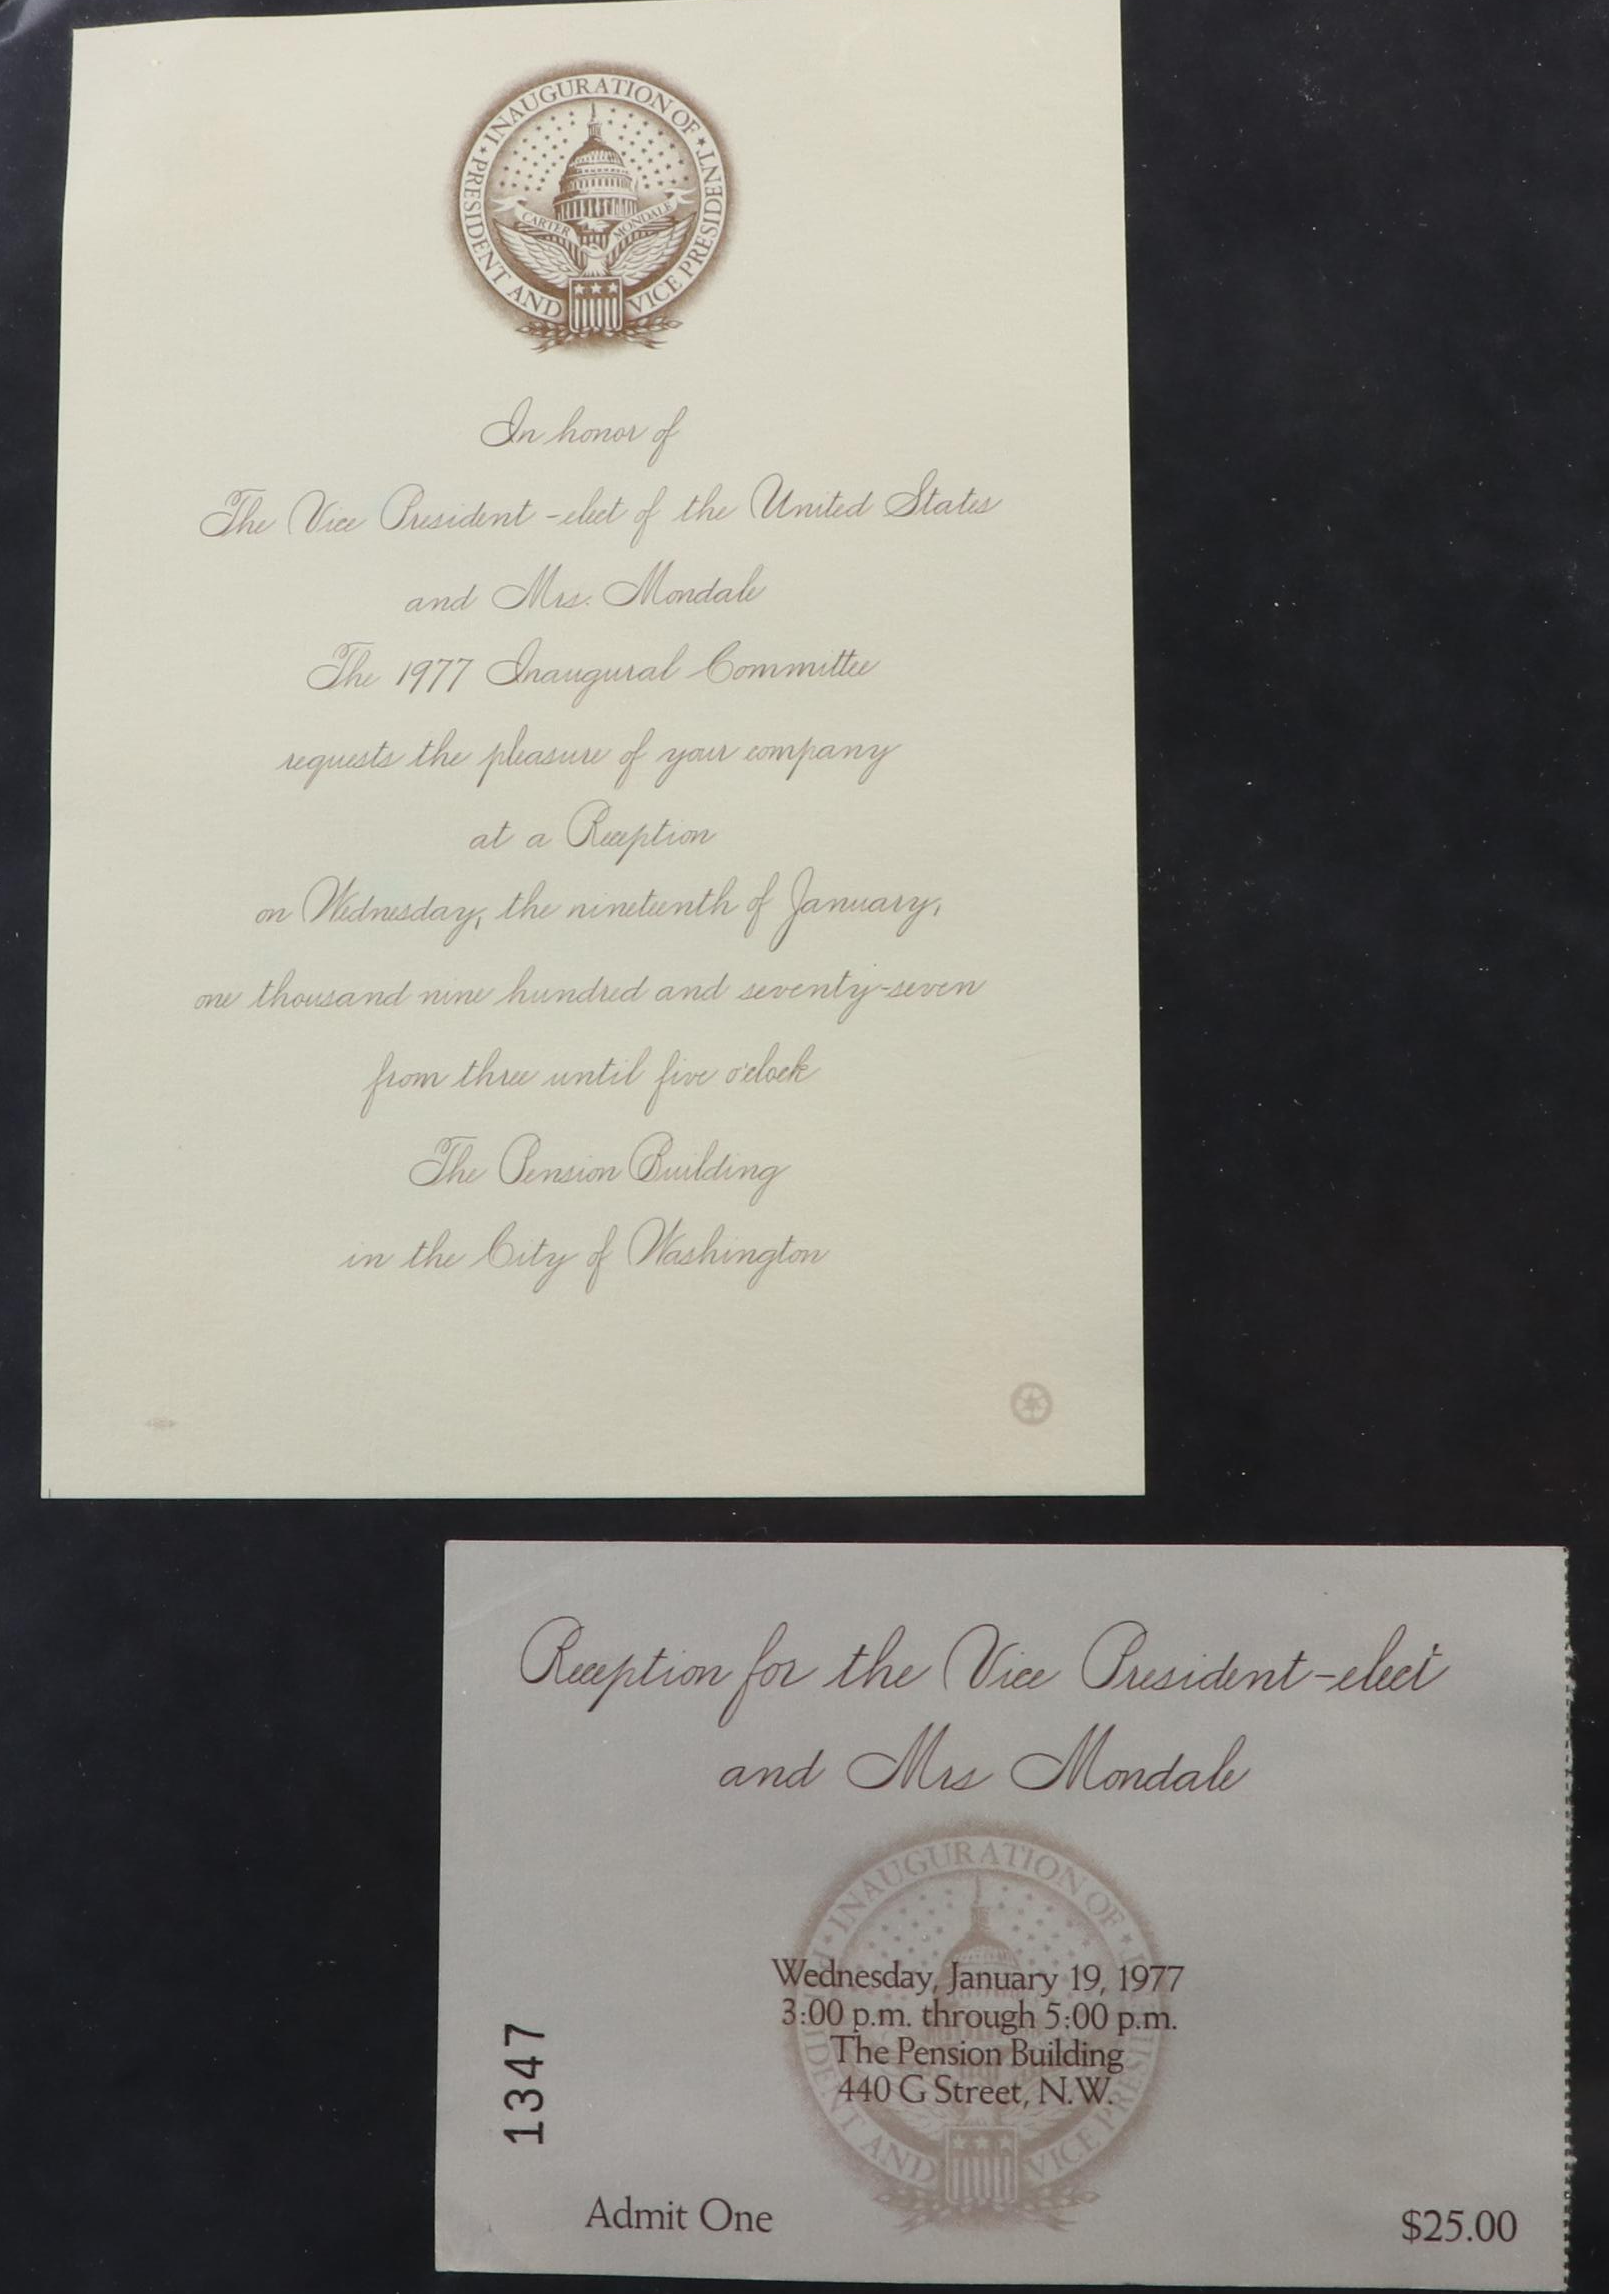 INAUGURATION OF
PRESIDENT AND VICE PRESIDENT
CARTER MONDALE
In honor of
The Vice President-elect of the United States
and Mrs. Mondale
The 1977 Inaugural Committee
requests the pleasure of your company
at a Reception
on Wednesday, the nineteenth of January,
one thousand nine hundred and seventy-seven
from three until five o'clock
The Pension Building
in the City of Washington
Reception for the Vice President-elect
and Mrs Mondale
INAUGURATION OF
Wednesday, January 19, 1977
3:00 p.m. through 5:00 p.m.
The Pension Building
440 G Street, N.W.
AND VICE
1347
Admit One
$25.00